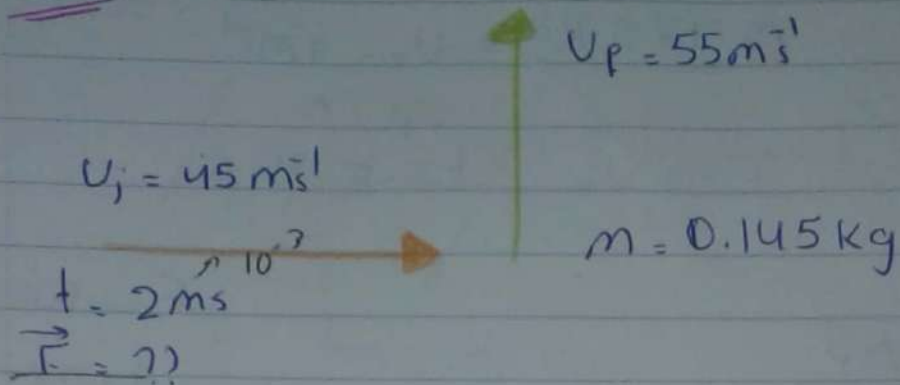 U_f = 55 ms⁻¹
U_i = 45 ms⁻¹
m = 0.145 kg
10⁻³
t = 2ms
F⃗ = ??